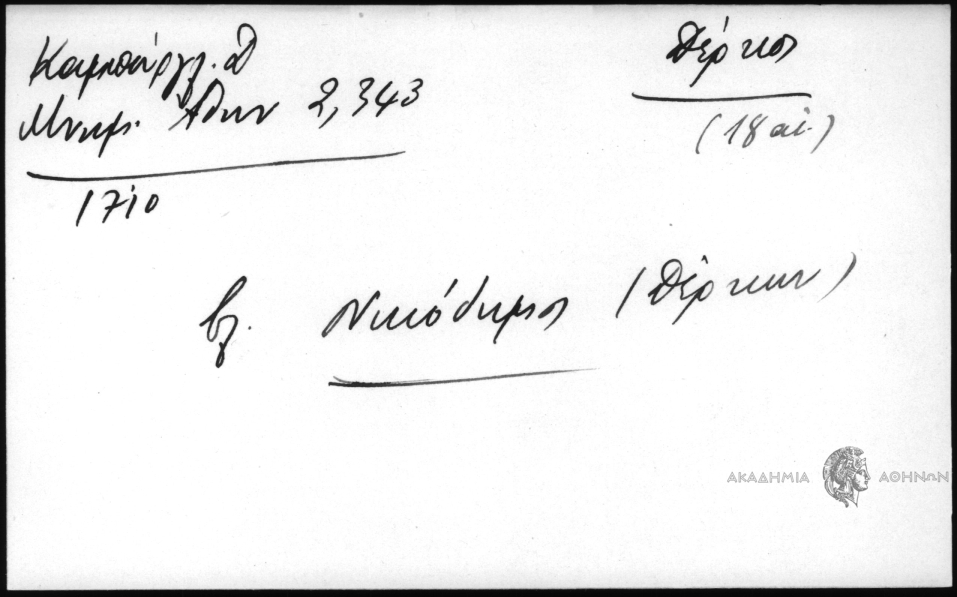 Καμπούρογλ. Δ
Μνημ. Ἀθην 2, 343
1710
Δέρκοι
(18 αἰ.)
βλ. Νικόδημος (Δέρκων)
ΑΚΑΔΗΜΙΑ ΑΘΗΝΩΝ